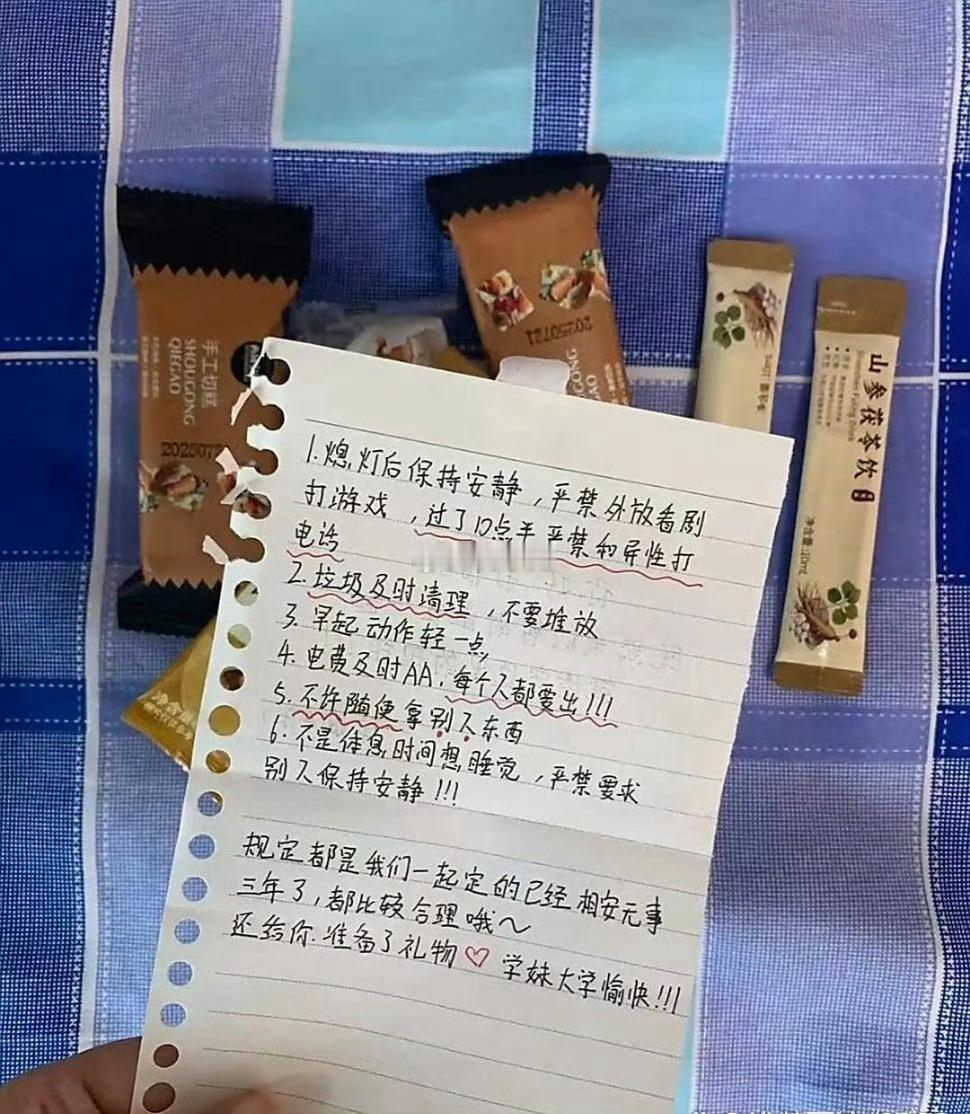 手工切糕
SHOUGONG
QIEGAO
20250721
山参茯苓饮
净含量:10mL
1.熄灯后保持安静，严禁外放看剧
打游戏，过了12点半严禁和异性打
电话
2.垃圾及时清理，不要堆放
3.早起动作轻一点
4.电费及时AA，每个人都要出!!!
5.不许随便拿别人东西
6.不是休息时间想睡觉，严禁要求
别人保持安静!!!
规定都是我们一起定的已经相安无事
三年了,都比较合理哦～
还给你准备了礼物♡ 学妹大学愉快!!!